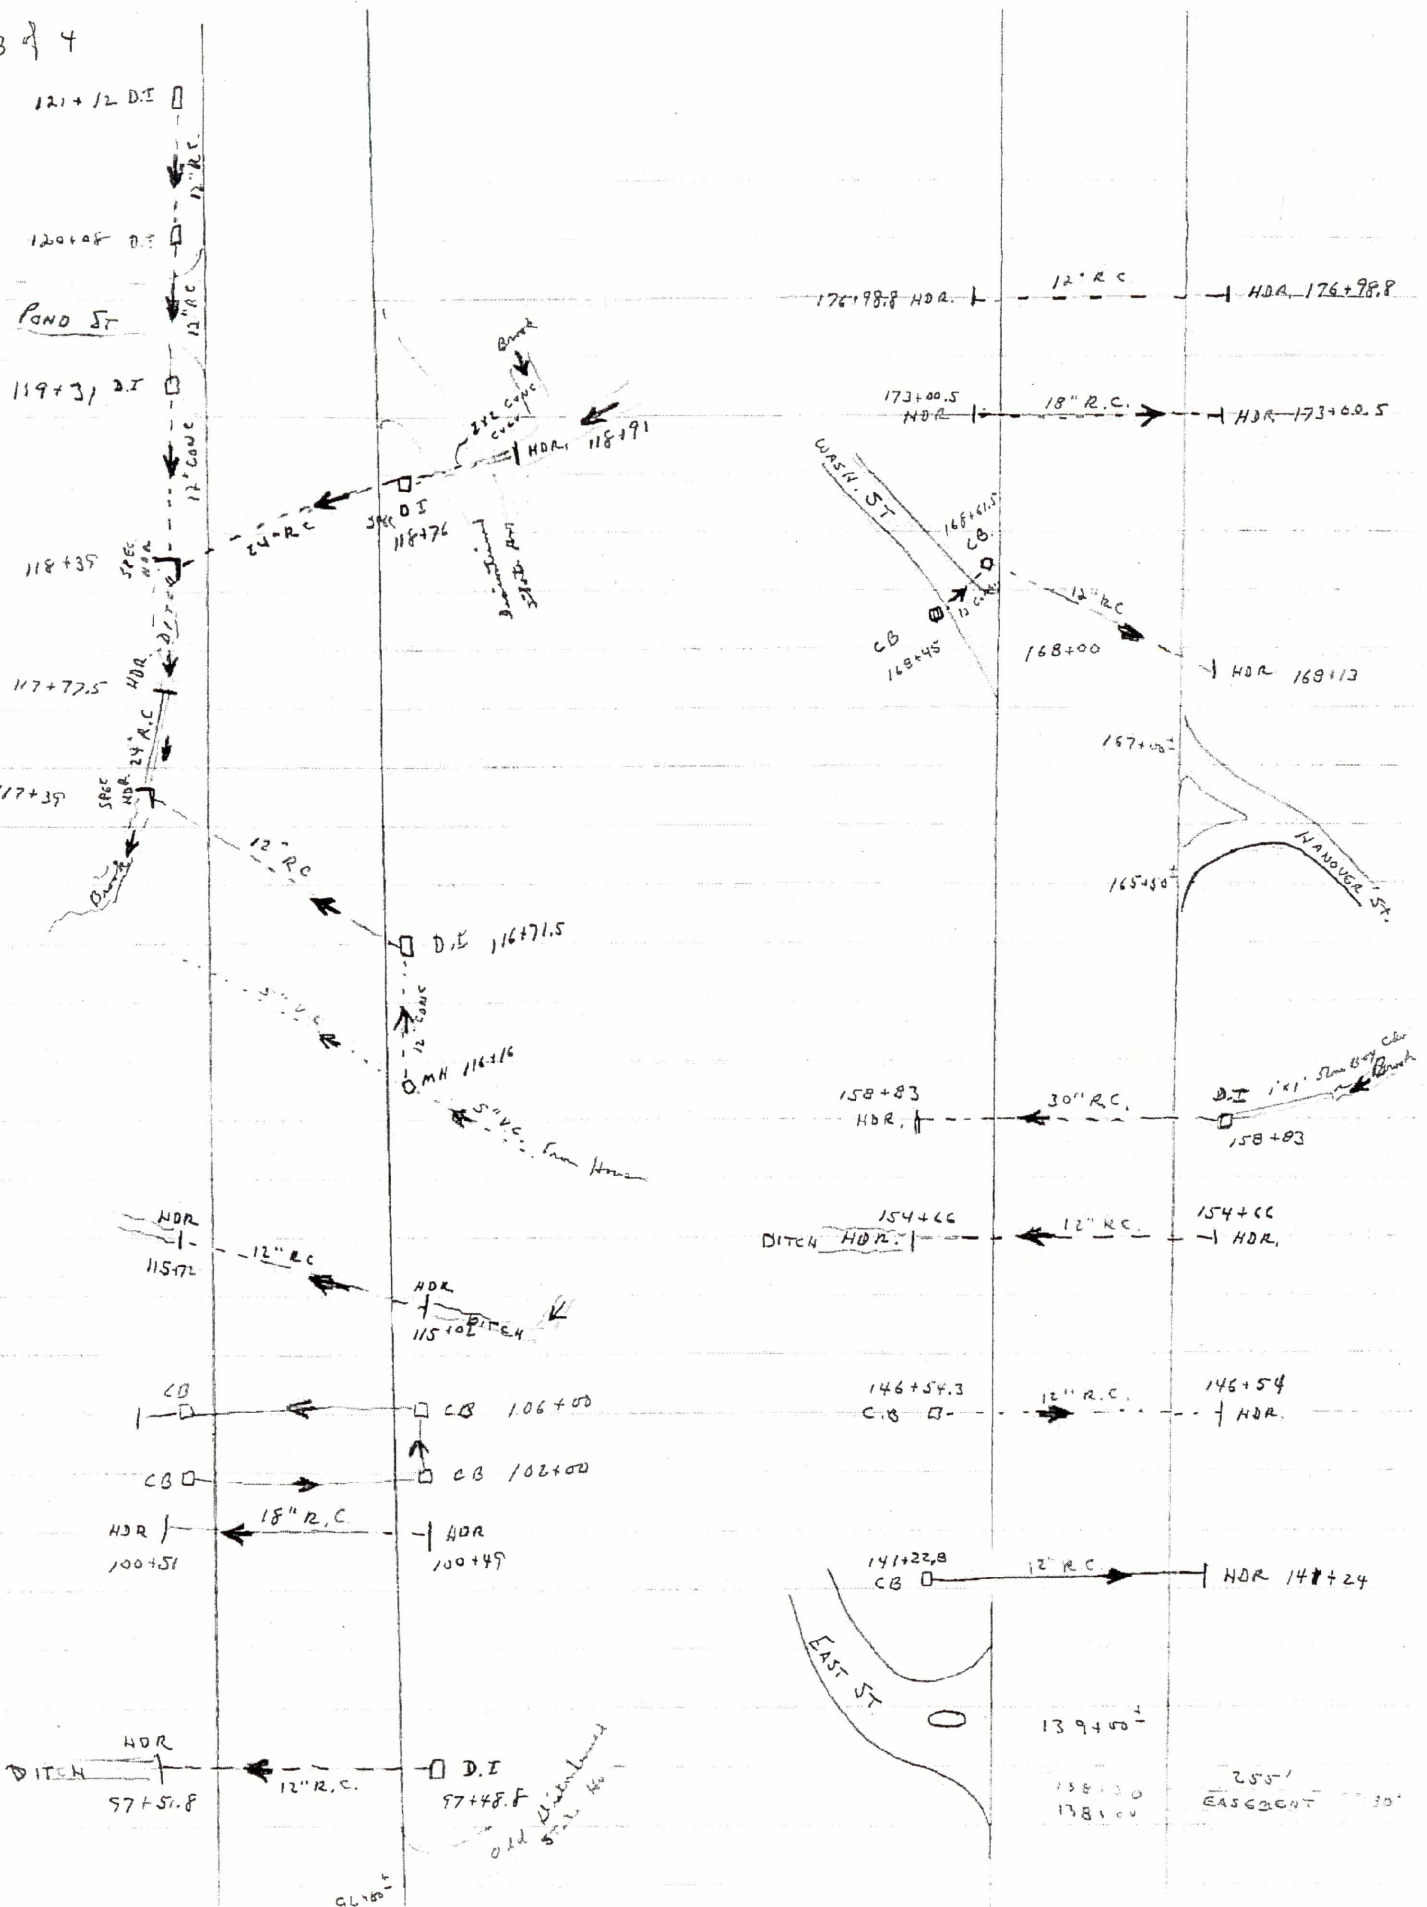 3 of 4
121+12 D.I
12" R.C.
120+08 D.I
12" RC
POND ST
119+31 D.I
12" CONC
Brook
2x2 CONC
HDR. 118+91
24" R C
SPEC D I
118+76
118+39
SPEC HDR
DITCH
117+77.5 HDR
24" R.C
117+39
SPEC HDR
Brook
12" RC
D.I 116+71.5
12" CONC
5" V.C
MH 116+16
5" V.C. From House
HDR
115+72
12" RC
HDR
115+02
DITCH
CB
CB 106+00
CB
CB 102+00
HDR
100+51
18" R.C.
HDR
100+49
HDR
DITCH
97+51.8
12" R.C.
D.I
97+48.8
176+98.8 HDR.
12" R C
HDR. 176+98.8
173+00.5
HDR
18" R.C.
HDR 173+00.5
WASH. ST
168+61.5
CB.
12 CONC.
CB
168+45
12" RC
168+00
HDR 168+13
167+00±
165+50±
HANOVER ST.
158+83
HDR.
30" R.C.
D.I
158+83
Brook
154+66
DITCH HDR.
12" R.C.
154+66
HDR.
146+54.3
C.B
12" R.C.
146+54
HDR.
141+22.8
CB
12" R C
HDR 141+24
EAST ST.
139+00±
138+30
138+00
255'
EASEMENT 30'